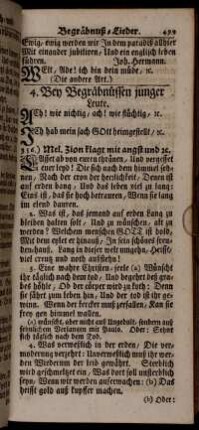 Begräbnuß-Lieder. 499
Ewig, ewig werden wir Jn dem paradiß allhier
Mit einander jubiliren, Und ein englisch leben
führen. Joh. Hermann.
Welt, Ade! ich bin dein müde, ꝛc.
(Die andere Art.)
4. Bey Begräbnüssen junger
Leute.
Ach! wie nichtig, ach! wie flüchtig, ꝛc.
Jch hab mein sach GOtt heimgestellt, ꝛc.
Mel. Zion klagt mit angst und ꝛc.
Lasset ab von euren thränen, Und vergesset
euer leyd! Die sich nach dem himmel seh-
nen, Nach der ehr der herrlichkeit, Denen ist
auf erden bang, Und das leben viel zu lang:
Eins ist, das sie hoch betrauren, Wenn sie lang
im elend dauren.
2. Was ist, das jemand auf erden Lang zu
bleiben halten solt, Und zu wünschen, alt zu
werden? Welchem menschen GOTT ist hold,
Mit dem eylet er hinauf, Jn sein schönes
Lang in dieser welt umgehen, Heißt,
viel creutz und noth ausstehn!
3. Eine wahre Christen-seele (a) Wünscht
ihr täglich nach dem tod, Und begehrt des gra-
bes höhle, Ob der cörper wird zu koth: Denn
sie fährt zum leben hin, Und der tod ist ihr ge-
winn. Wenn der kercker muß zerfallen, Kan sie
frey gen himmel wallen.
(a) wünschet, aber nicht aus Ungedult, sondern aus
Verlangen mit Paulo. Oder: Sehnt
sich täglich nach dem tod.
4. Was verweslich in der erden, Die ver-
moderung verzehrt: Unverweslich muß ihr wer-
den Wiederum der leib gewährt. Sterblich
wird er geschmeltzet ein, Was dort soll unsterblich
seyn, Wenn wir werden auferwachen: (b) Das
heißt gold aus kupffer machen.
(b) Oder: